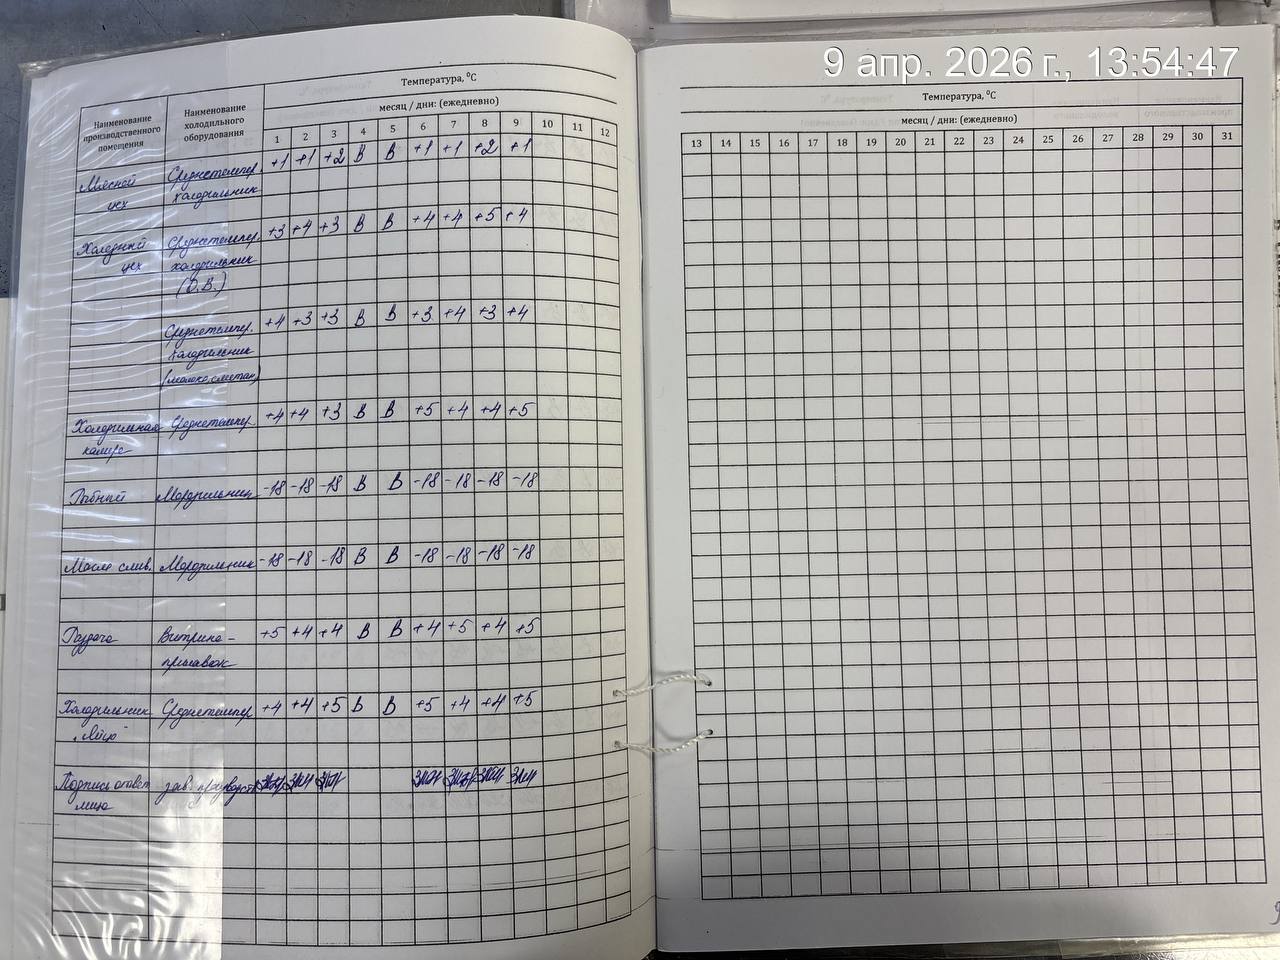 9 апр. 2026 г., 13:54:47
Наименование производственного помещения
Наименование холодильного оборудования
Температура, ⁰С
месяц / дни: (ежедневно)
1 2 3 4 5 6 7 8 9 10 11 12
Мясной Среднетемпер. +1 +1 +2 В В +1 +1 +2 +1
цех холодильник
Холодный Среднетемпер. +3 +4 +3 В В +4 +4 +5 +4
цех холодильник
Среднетемпер. +4 +3 +3 В В +3 +4 +3 +4
холодильник
(молоко, сметан)
Холодильная Среднетемпер. +4 +4 +3 В В +5 +4 +4 +5
камера
Рыбный Морозильник -18 -18 -18 В В -18 -18 -18 -18
Масло слив. Морозильник -18 -18 -18 В В -18 -18 -18 -18
Раздача Витрина- +5 +4 +4 В В +4 +5 +4 +5
прилавок
Холодильник Среднетемпер +4 +4 +5 В В +5 +4 +4 +5
"Яйцо"
Подпись ответ зав. производств
лица
Температура, ⁰С
месяц / дни: (ежедневно)
13 14 15 16 17 18 19 20 21 22 23 24 25 26 27 28 29 30 31